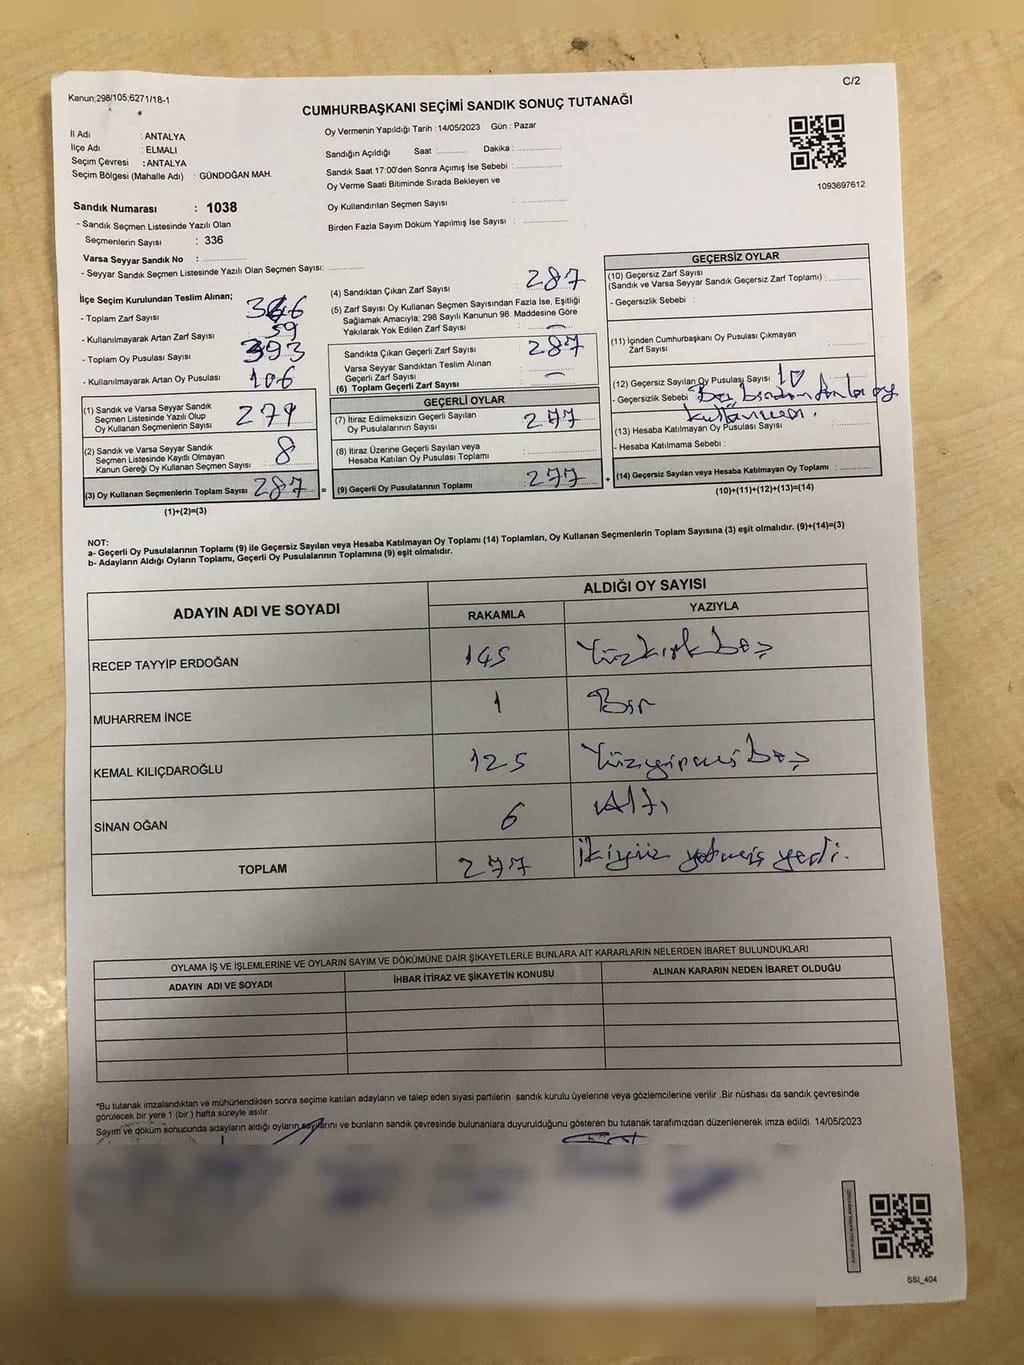 Kanun;298/105,6271/18-1
C/2
CUMHURBAŞKANI SEÇİMİ SANDIK SONUÇ TUTANAĞI
İl Adı : ANTALYA
İlçe Adı : ELMALI
Seçim Çevresi : ANTALYA
Seçim Bölgesi (Mahalle Adı) : GÜNDOĞAN MAH.
Oy Vermenin Yapıldığı Tarih : 14/05/2023 Gün : Pazar
Sandığın Açıldığı Saat : Dakika :
Sandık Saat 17:00'den Sonra Açımış İse Sebebi :
Oy Verme Saati Bitiminde Sırada Bekleyen ve
Oy Kullandırılan Seçmen Sayısı :
Birden Fazla Sayım Döküm Yapılmış İse Sayısı :
1093697612
Sandık Numarası : 1038
- Sandık Seçmen Listesinde Yazılı Olan
Seçmenlerin Sayısı : 336
Varsa Seyyar Sandık No :
- Seyyar Sandık Seçmen Listesinde Yazılı Olan Seçmen Sayısı:
İlçe Seçim Kurulundan Teslim Alınan;
- Toplam Zarf Sayısı : 346
- Kullanılmayarak Artan Zarf Sayısı : 59
- Toplam Oy Pusulası Sayısı : 393
- Kullanılmayarak Artan Oy Pusulası : 106
(1) Sandık ve Varsa Seyyar Sandık
Seçmen Listesinde Yazılı Olup
Oy Kullanan Seçmenlerin Sayısı : 279
(2) Sandık ve Varsa Seyyar Sandık
Seçmen Listesinde Kayıtlı Olmayan
Kanun Gereği Oy Kullanan Seçmen Sayısı : 8
(3) Oy Kullanan Seçmenlerin Toplam Sayısı 287
(1)+(2)=(3)
(4) Sandıktan Çıkan Zarf Sayısı : 287
(5) Zarf Sayısı Oy Kullanan Seçmen Sayısından Fazla İse, Eşitliği
Sağlamak Amacıyla; 298 Sayılı Kanunun 98. Maddesine Göre
Yakılarak Yok Edilen Zarf Sayısı : —
Sandıkta Çıkan Geçerli Zarf Sayısı : 287
Varsa Seyyar Sandıktan Teslim Alınan
Geçerli Zarf Sayısı : —
(6) Toplam Geçerli Zarf Sayısı :
GEÇERLİ OYLAR
(7) İtiraz Edilmeksizin Geçerli Sayılan
Oy Pusulalarının Sayısı : 277
(8) İtiraz Üzerine Geçerli Sayılan veya
Hesaba Katılan Oy Pusulası Toplamı :
= (9) Geçerli Oy Pusulalarının Toplamı : 277 +
GEÇERSİZ OYLAR
(10) Geçersiz Zarf Sayısı
(Sandık ve Varsa Seyyar Sandık Geçersiz Zarf Toplamı) :
- Geçersizlik Sebebi :
(11) İçinden Cumhurbaşkanı Oy Pusulası Çıkmayan
Zarf Sayısı :
(12) Geçersiz Sayılan Oy Pusulası Sayısı : 10
- Geçersizlik Sebebi : oy
(13) Hesaba Katılmayan Oy Pusulası Sayısı :
- Hesaba Katılmama Sebebi :
(14) Geçersiz Sayılan veya Hesaba Katılmayan Oy Toplamı :
(10)+(11)+(12)+(13)=(14)
NOT:
a- Geçerli Oy Pusulalarının Toplamı (9) ile Geçersiz Sayılan veya Hesaba Katılmayan Oy Toplamı (14) Toplamları, Oy Kullanan Seçmenlerin Toplam Sayısına (3) eşit olmalıdır. (9)+(14)=(3)
b- Adayların Aldığı Oyların Toplamı, Geçerli Oy Pusulalarının Toplamına (9) eşit olmalıdır.
ADAYIN ADI VE SOYADI
ALDIĞI OY SAYISI
RAKAMLA YAZIYLA
RECEP TAYYİP ERDOĞAN 145 Yüzkırkbeş
MUHARREM İNCE 1 Bir
KEMAL KILIÇDAROĞLU 125 Yüzyirmibeş
SİNAN OĞAN 6 Altı
TOPLAM 277 ikiyüz yetmiş yedi.
OYLAMA İŞ VE İŞLEMLERİNE VE OYLARIN SAYIM VE DÖKÜMÜNE DAİR ŞİKAYETLERLE BUNLARA AİT KARARLARIN NELERDEN İBARET BULUNDUKLARI
ADAYIN ADI VE SOYADI İHBAR İTİRAZ VE ŞİKAYETİN KONUSU ALINAN KARARIN NEDEN İBARET OLDUĞU
*Bu tutanak imzalandıktan ve mühürlendikten sonra seçime katılan adayların ve talep eden siyasi partilerin sandık kurulu üyelerine veya gözlemcilerine verilir .Bir nüshası da sandık çevresinde
görülecek bir yere 1 (bir ) hafta süreyle asılır.
Sayım ve döküm sonucunda adayların aldığı oyların sayılarını ve bunların sandık çevresinde bulunanlara duyurulduğunu gösteren bu tutanak tarafımızdan düzenlenerek imza edildi. 14/05/2023
SSI_404